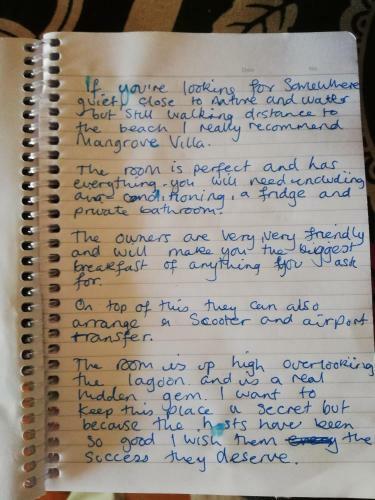 If you're looking for somewhere
quiet, close to nature and water
but still walking distance to
the beach I really recommend
Mangrove Villa.
The room is perfect and has
everything you will need including
conditioning, a fridge and
private bathroom.
The owners are very, very friendly
and will make you the biggest
breakfast of anything you ask
for.
On top of this they can also
arrange a scooter and airport
transfer.
The room is up high overlooking
the lagoon and is a real
hidden gem. I want to
keep this place a secret but
because the hosts have been
so good I wish them the
success they deserve.